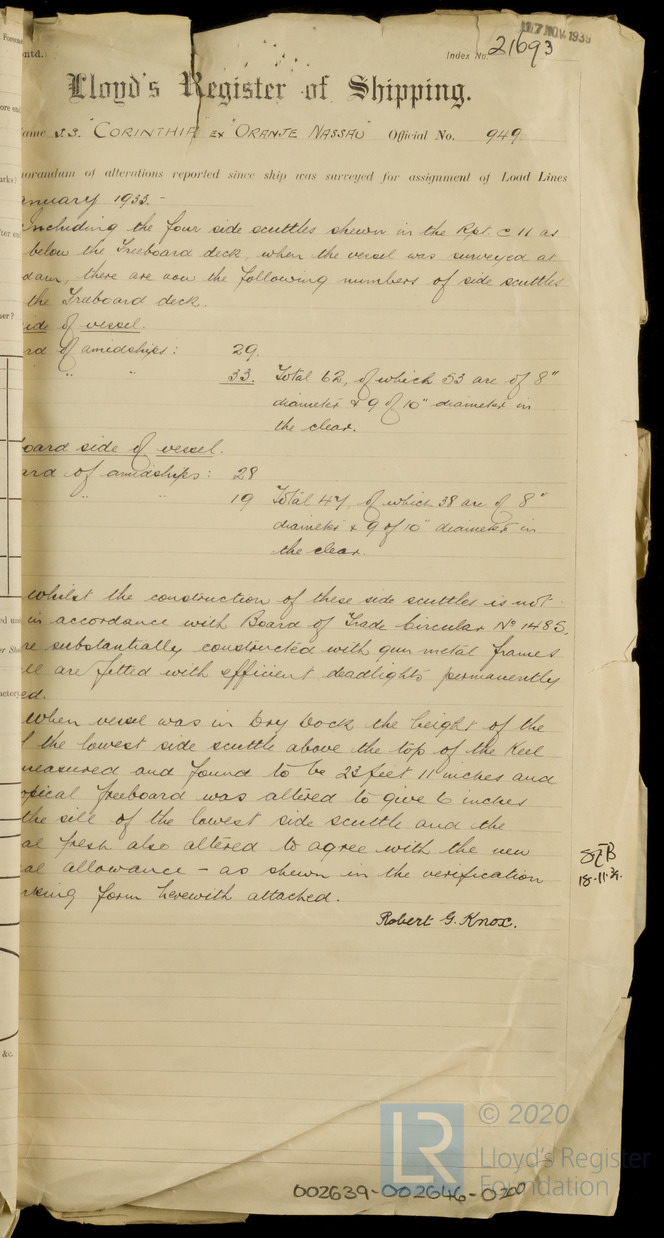 17 NOV 1939
Index No. 21693
Lloyd's Register of Shipping.
ame S.S. "CORINTHIA" EX "ORANJE NASSAU" Official No. 949
orandum of alterations reported since ship was surveyed for assignment of Load Lines
anuary 1933.-
Including the four side scuttles shewn in the Rpt. C 11 as
below the Freeboard deck, when the vessel was surveyed at
dam, there are now the following numbers of side scuttles
the Freeboard deck.
ide of vessel.
rd of amidships: 29.
" " 33. Total 62, of which 53 are of 8"
diameter & 9 of 10" diameter in
the clear.
oard side of vessel.
ard of amidships: 28
" " 19 Total 47, of which 38 are of 8"
diameter & 9 of 10" diameter in
the clear.
whilst the construction of these side scuttles is not
in accordance with Board of Trade Circular No 1485,
re substantially constructed with gun metal frames
ll are fitted with efficient deadlights permanently
ed.
When vessel was in Dry Dock the height of the
the lowest side scuttle above the top of the Keel
measured and found to be 23 feet 11 inches and
opical freeboard was altered to give 6 inches
the sill of the lowest side scuttle and the
al fresh also altered to agree with the new
al allowance - as shewn in the verification
rking form herewith attached.
Robert G. Knox.
18-11-39.
&c.
LR © 2020
Lloyd's Register
Foundation
002639-002646-0200